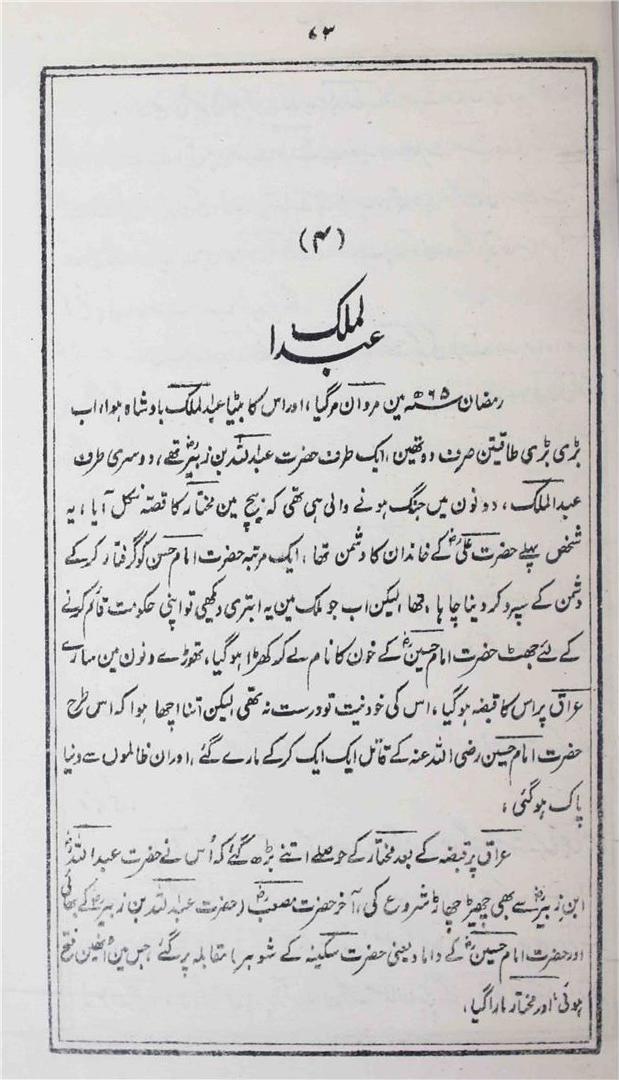 ۶۳
(۴)
عبدالملک
رمضان ۶۵ھ مین مروان مرگیا، اور اس کا بیٹا عبدالملک بادشاہ ہوا، اب
بڑی بڑی طاقتین صرف دو تھین، ایک طرف حضرت عبداللہ بن زبیرؓ تھے، دوسری طرف
عبدالملک، دونون میں جنگ ہونے والی ہی تھی کہ بیچ مین مختار کا قصہ نکل آیا، یہ
شخص پہلے حضرت علیؓ کے خاندان کا دشمن تھا، ایک مرتبہ حضرت امام حسن کو گرفتار کرکے
دشمن کے سپرد کر دینا چاہا تھا، لیکن اب جو ملک مین یہ ابتری دکھی تو اپنی حکومت قائم کرنے
کے لئے جھٹ حضرت امام حسینؓ کے خون کا نام لے کر کھڑا ہو گیا، تھوڑے دنون مین سارے
عراق پر اس کا قبضہ ہو گیا، اس کی خود نیت تو درست نہ تھی لیکن اتنا اچھا ہوا کہ اس طرح
حضرت امام حسین رضی اللہ عنہ کے قاتل ایک ایک کرکے مارے گئے، اور ان ظالموں سے دنیا
پاک ہو گئی،
عراق پر قبضہ کے بعد مختار کے حوصلے اتنے بڑھ گئے کہ اُس نے حضرت عبداللہؓ
ابن زبیرؓ سے بھی چھیڑ چھاڑ شروع کی، آخر حضرت مصعبؓ (حضرت عبداللہ بن زبیرؓ کے بھائی
اور حضرت امام حسینؓ کے داماد یعنی حضرت سکینہ کے شوہر) مقابلہ پر گئے، جس مین انھین فتح
ہوئی اور مختار مارا گیا،